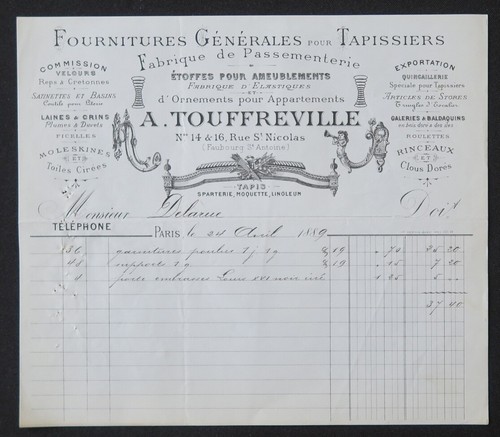 FOURNITURES GÉNÉRALES POUR TAPISSIERS
Fabrique de Passementerie
COMMISSION
VELOURS
Reps & Cretonnes
SATINETTES ET BASINS
LAINES & CRINS
Plumes & Duvets
FICELLES
MOLESKINES
ET
Toiles Cirées
ÉTOFFES POUR AMEUBLEMENTS
FABRIQUE D'ELASTIQUES
ET
d'Ornements pour Appartements
A. TOUFFREVILLE
Nos 14 & 16, Rue St Nicolas
(Faubourg St Antoine)
TAPIS
SPARTERIE, MOQUETTE, LINOLEUM
EXPORTATION
QUINCAILLERIE
Speciale pour Tapissiers
ARTICLES DE STORES
GALERIES & BALDAQUINS
en bois dorés
ROULETTES
RINCEAUX
ET
Clous Dorés
Monsieur Delarue Doit
TÉLÉPHONE
PARIS le 24 Avril 1889
136 19 25 20
48 supports 19 15 7 20
4 porte embrasses Louis XVI noir 1 25 5
37 40